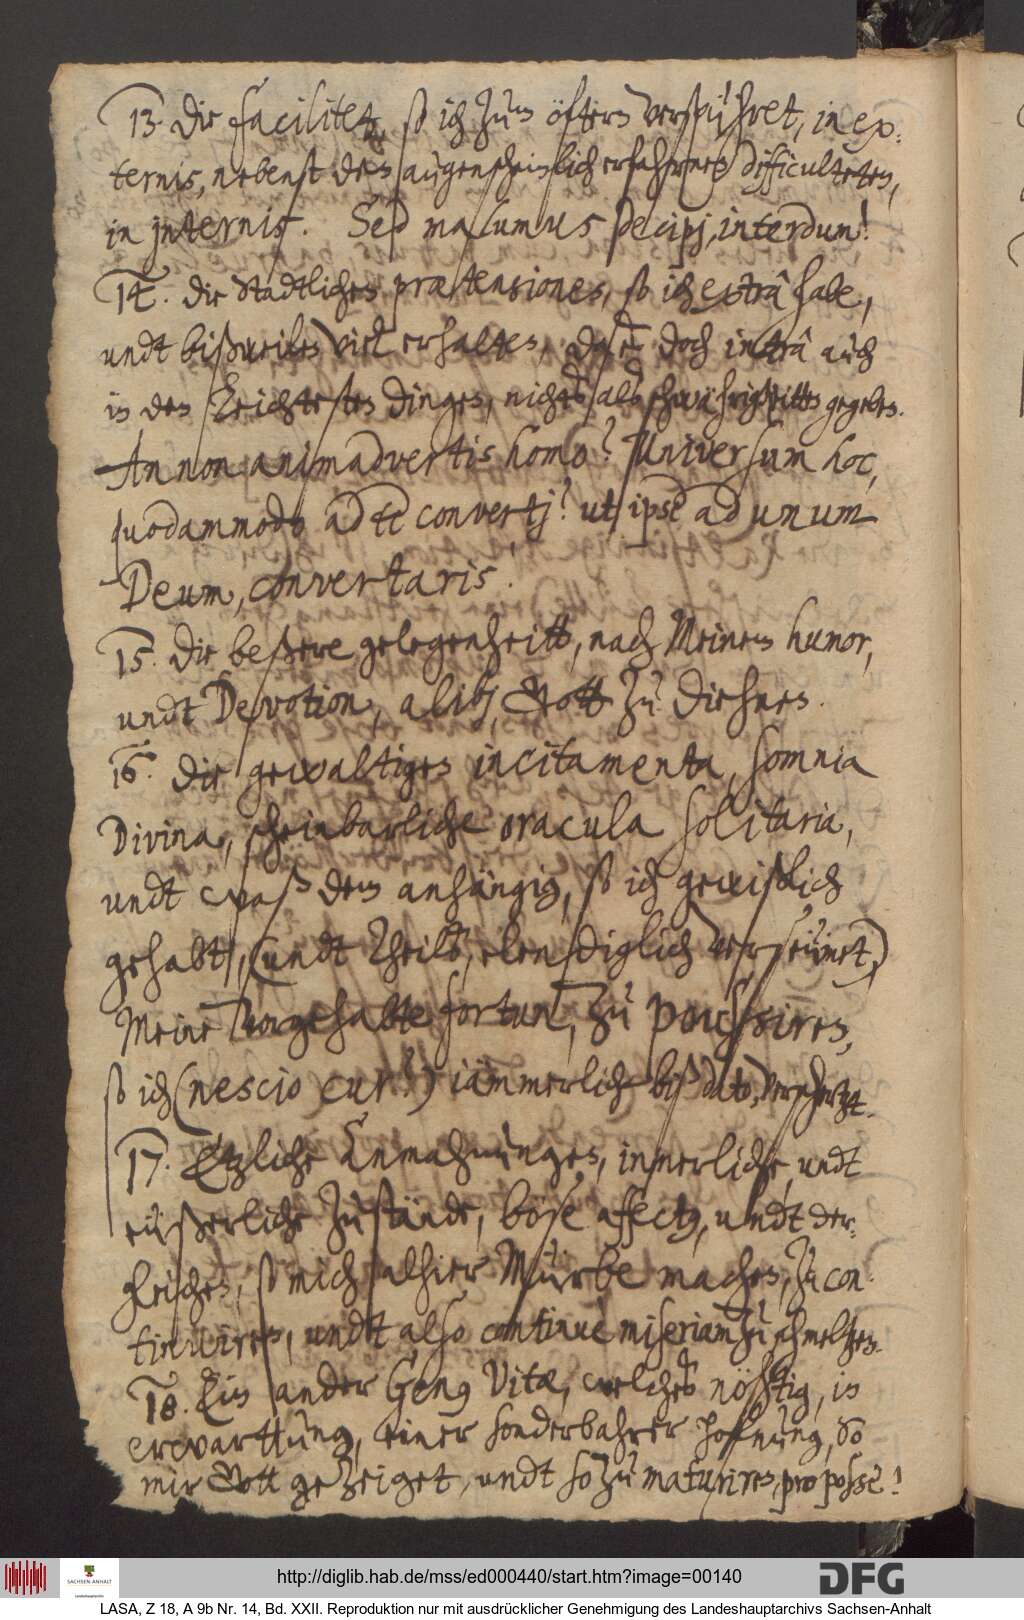 13. Die facilitet, so ich zum öftern verspühret, in ex-
ternis, nebenst den augenscheinlich erfahrnen difficulteten,
in internis. Sed malumus decipj, interdum!
14. Die stadtlichen prætensiones, so ich extrâ habe,
undt bißweilen viel erhalten, da doch intrâ auch
in den leichtesten dingen, nichts als schwührigkeitt gegeben.
An non animadvertis homo? Universum hoc,
quodammodo ad te convertj? ut ipse ad unum
Deum, convertaris.
15. Die beßere gelegenheitt, nach Meinem humor,
undt Devotion, alibj, Gott zu diehnen.
16. Die gewaltigen incitamenta, somnia
Divina, scheinbarliche oracula solitaria,
undt waß dem anhängig, so ich gewißlich
gehabt, (undt theils, elendiglich verseümet,)
Meine vorgehabte fortun, zu poussiren,
so ich (nescio cur?) iämmerlich biß dato, verschertzt.
17. Etzliche Anmahnungen, innerliche, undt
eüßerliche zustände, böse affecten, undt der-
gleichen, so mich alhier Mürbe machen, zu con-
tinuiren, undt also continuè miseriam zu schmeltzen.
18. Ein ander Genus Vitæ, welches nöhtig, in
erwarttung, einer sonderbahrer hofnung, so
mir Gott gezeiget, undt so zu maturiren, pro posse!
http://diglib.hab.de/mss/ed000440/start.htm?image=00140
SACHSEN-ANHALT
Landeshauptarchiv
DFG
LASA, Z 18, A 9b Nr. 14, Bd. XXII. Reproduktion nur mit ausdrücklicher Genehmigung des Landeshauptarchivs Sachsen-Anhalt